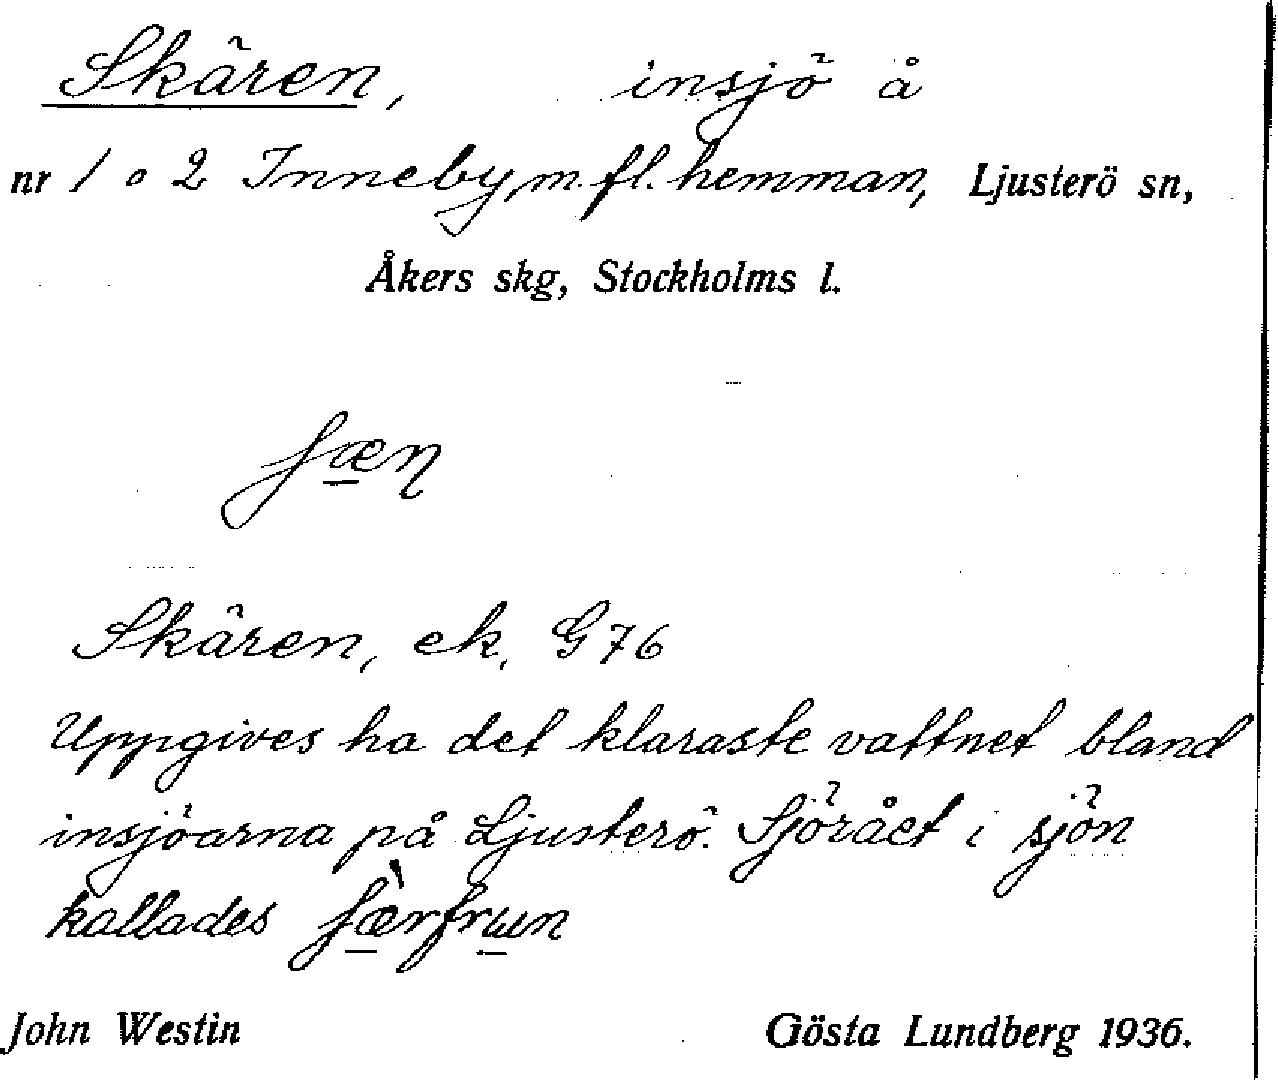 Skären, insjö å
nr 1 o 2 Inneby m.fl. hemman, Ljusterö sn,
Åkers skg, Stockholms l.
ʃæ̱ɳ
Skären, ek. G 76
Uppgives ha det klaraste vattnet bland
insjöarna på Ljusterö. Sjörået i sjön
kallades ʃæ̱̀rfrɯ̱n
John Westin Gösta Lundberg 1936.